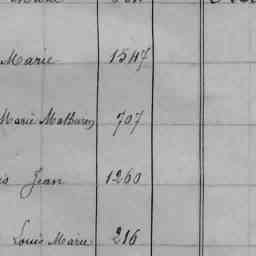 Marie 1547
Marie Mathurin 707
Jean 1260
Louis Marie 216